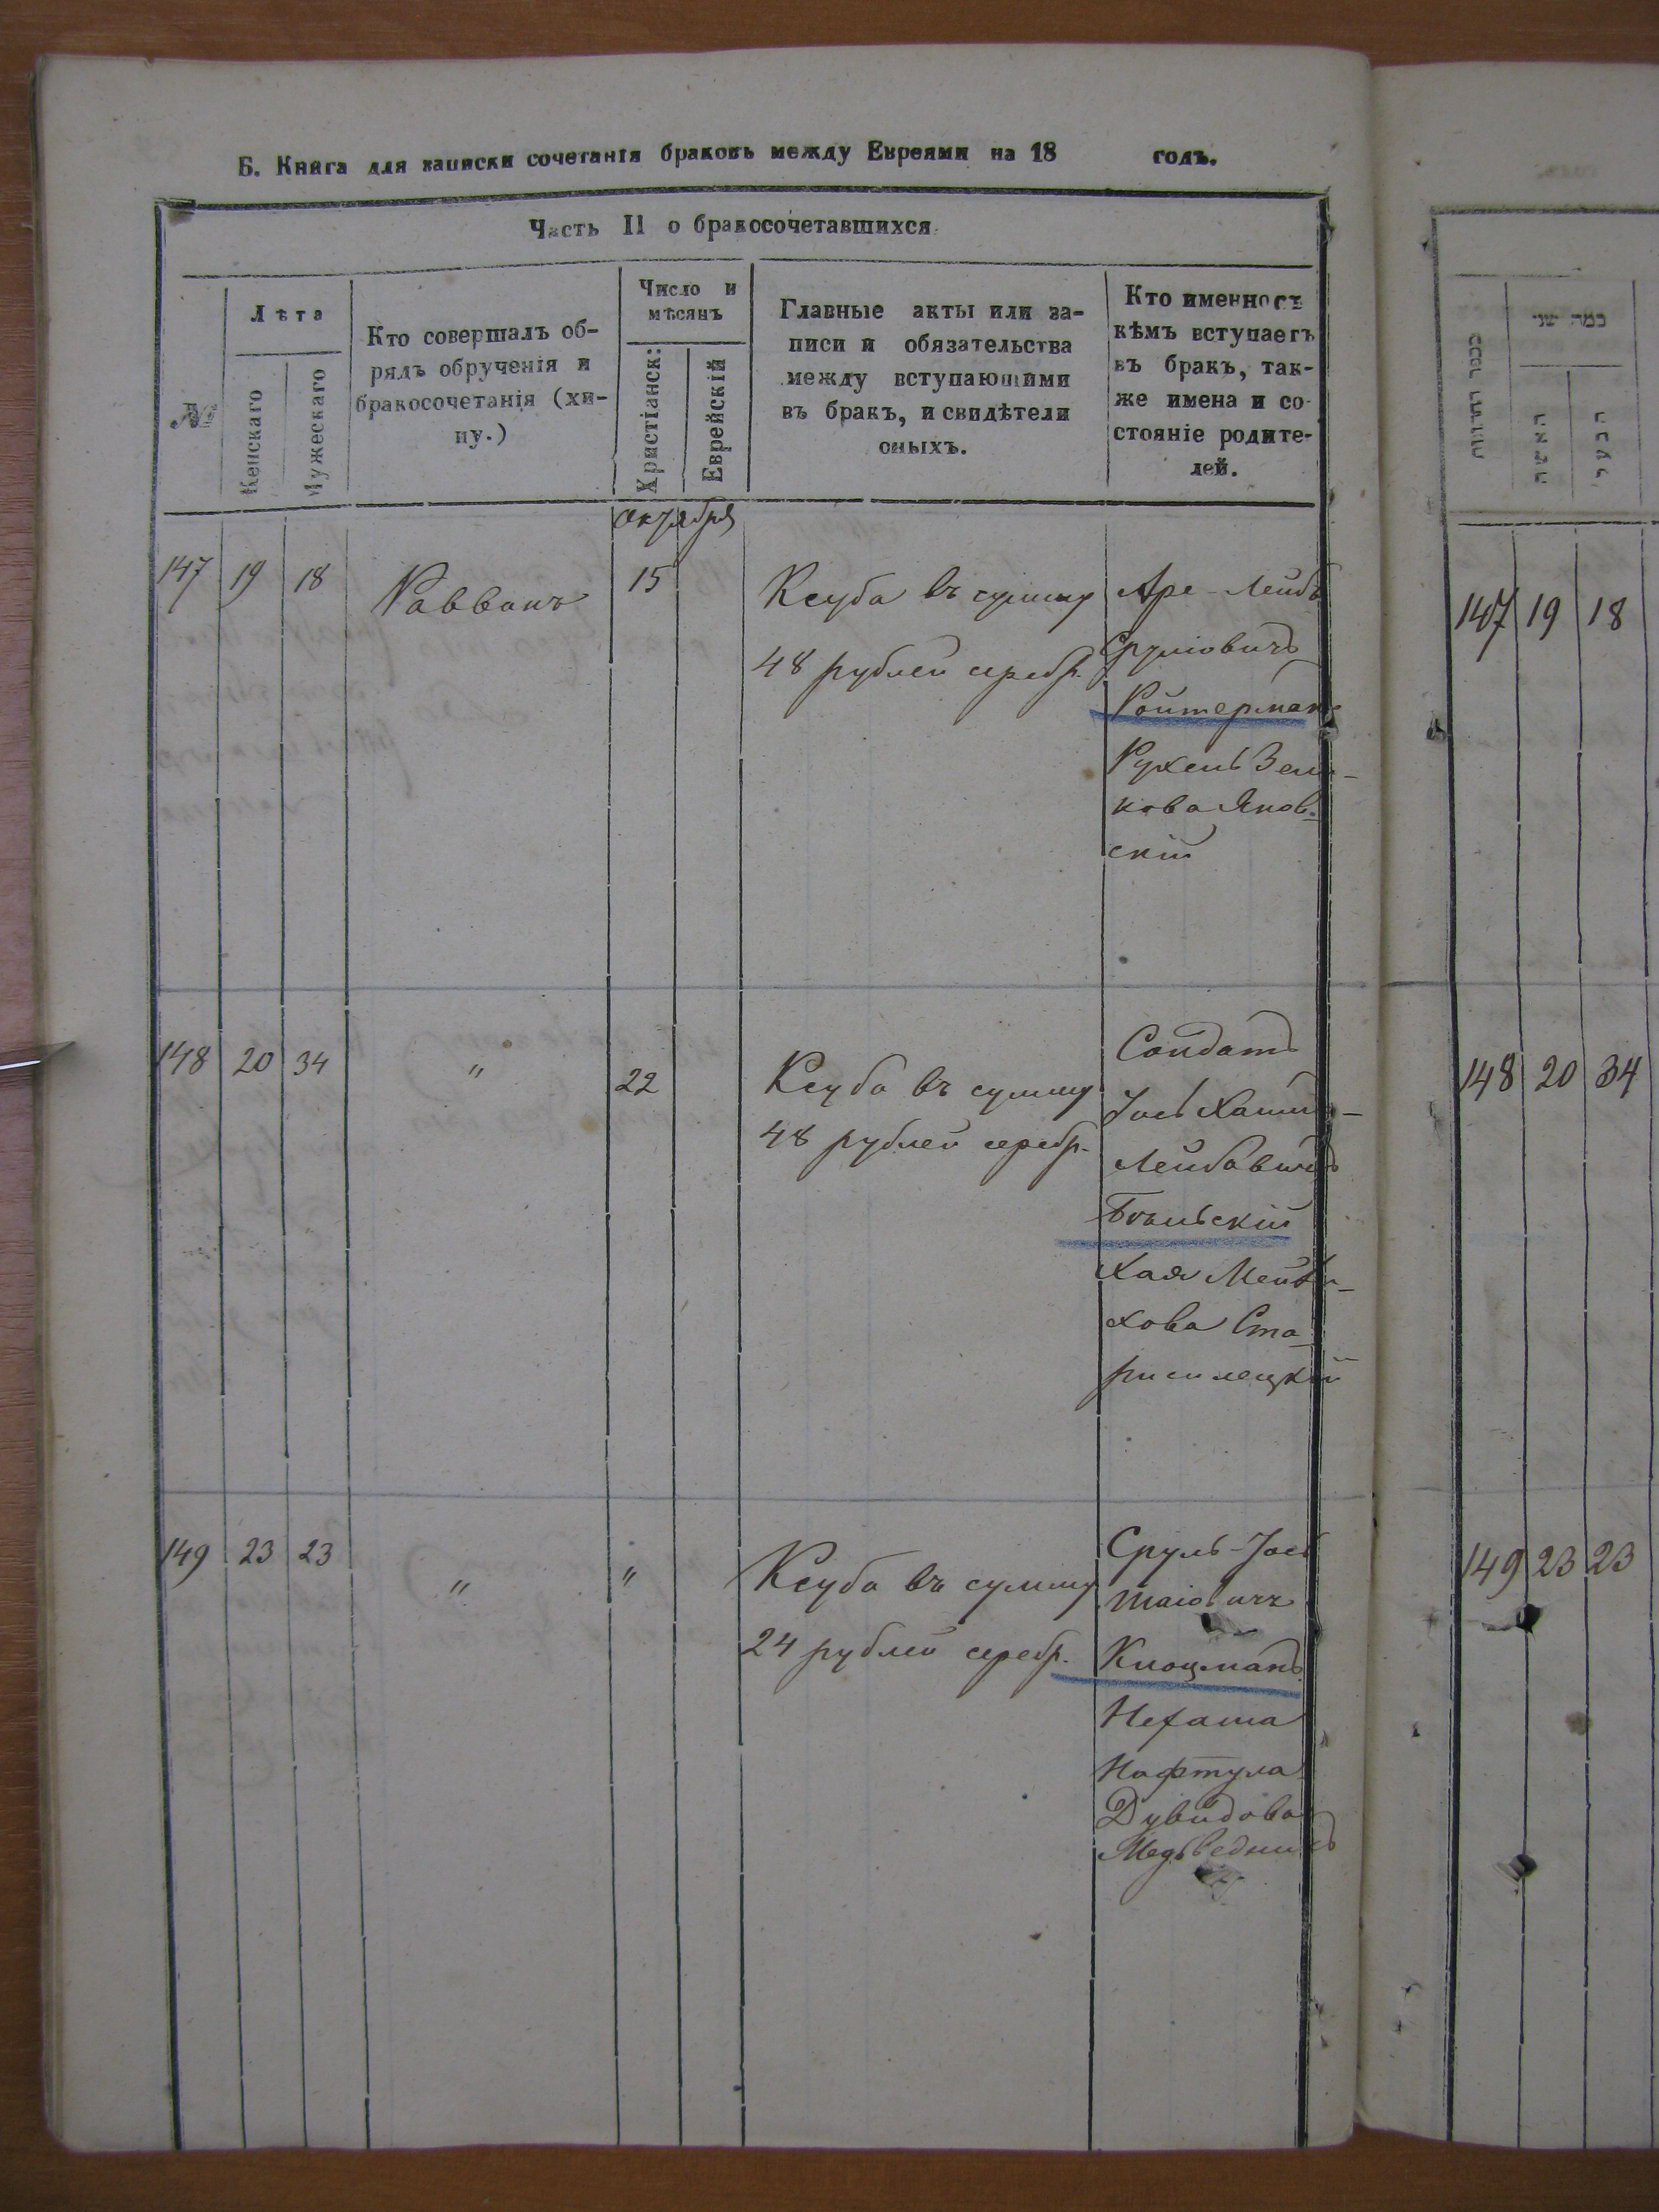 Б. Книга для записки сочетанія браковъ между Евреями на 18 годъ.
Часть II о бракосочетавшихся
№
Лѣта
Женскаго
Мужескаго
Кто совершалъ об-
рядъ обрученія и
бракосочетанія (хи-
пу.)
Число и
мѣсянъ
Христіанск:
Еврейскій
Главные акты или за-
писи и обязательства
между вступающими
въ бракъ, и свидѣтели
оныхъ.
Кто именно съ
кѣмъ вступаетъ
въ бракъ, так-
же имена и со-
стояніе родите-
лей.
октября
147 19 18 Раввинъ 15
Ксуба въ сумму
48 рублей серебр.
Аре-Лейбъ
Сруліовичъ
Ройтерманъ
Рухель Зель-
кова Янов-
скій
148 20 34 " 22
Ксуба въ сумму
48 рублей серебр.
Солдатъ
Іось Хаим-
Лейбовичъ
Бѣльскій
Хая
хова Ста-
149 23 23 " "
Ксуба въ сумму
24 рублей серебр.
Сруль-Іось
Клоцманъ
Нехама
Нафтула
Дувидова
Медведникъ
מספר החתונות
כמה שני
האשה
הבעל
147 19 18
148 20 34
149 23 23